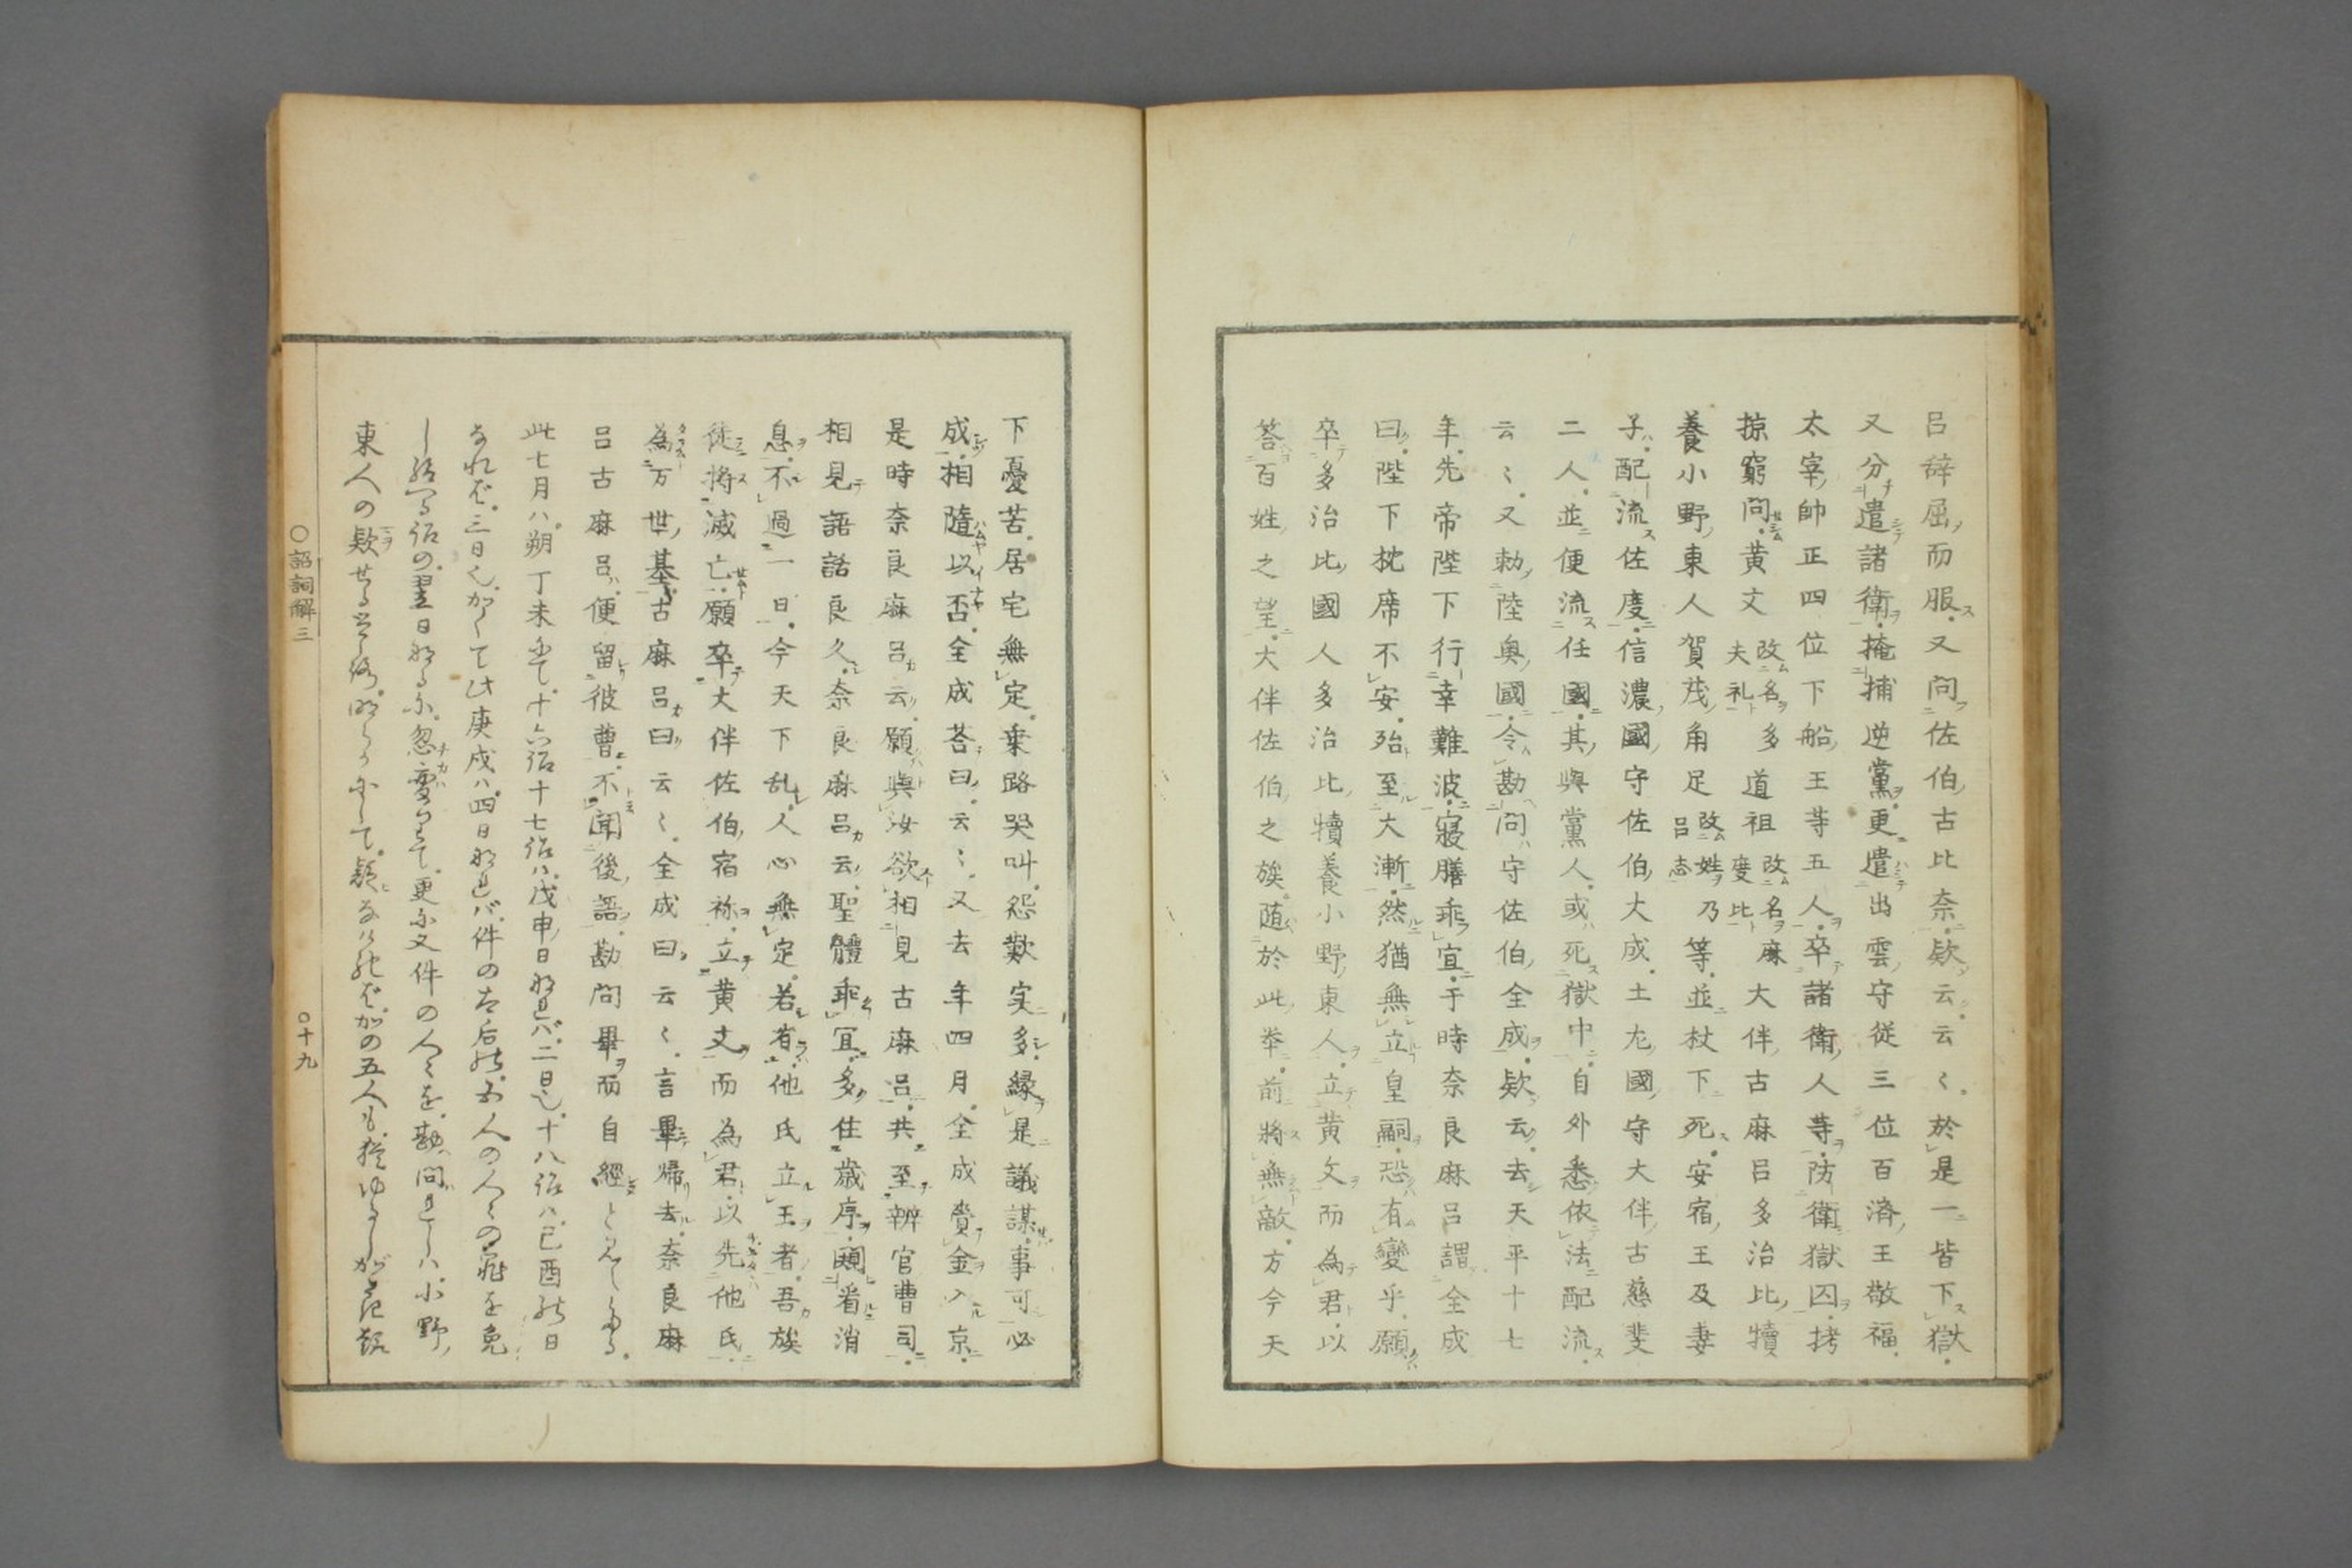 呂辞屈而服又問佐伯古比奈欵云云〻於是一皆下獄
又分遣諸衛掩捕逆黨更遣出雲守従三位百済王敬福
太宰帥正四位下船王等五人卒諸衛人等防衛獄囚拷
掠窮問黄文改名多夫礼道祖改名麻度比大伴古麻呂多治比犢
養小野東人賀茂角足改姓乃呂志等並杖下死安宿王及妻
子配流佐度信濃國守佐伯大成土左國守大伴古慈斐
二人並便流任國其與黨人或死獄中自外悉依法配流
云〻又勅陸奥國令勘問守佐伯全成欵云去天平十七
年先帝陛下行幸難波寝膳乖宜于時奈良麻呂謂全成
曰陛下枕席不安殆至大漸然猶無立皇嗣恐有變乎願
卒多治比國人多治比犢養小野東人立黄文而為君以
答百姓之望大伴佐伯之族随於此挙前將無敵方今天
下憂苦居宅無定乗路哭叫怨歎実多縁是議謀事可必
成相隨以否全成荅曰云〻又去年四月全成賫金入京
是時奈良麻呂云願與汝欲相見古麻呂共至辨官曹司
相見語話良久奈良麻呂云聖體乖宜多住歳序闚看消
息不過一日今天下乱人心無定若有他氏立王者吾族
徒將滅亡願卒大伴佐伯宿祢立黄文而為君以先他氏
為万世基古麻呂曰云〻全成曰云〻言畢帰去奈良麻
呂古麻呂便留彼曹不聞後語勘問畢而自經と見えたる
此七月ハ朔丁未にて十六詔十七詔ハ戊申日なれバ二日也十八詔ハ己酉の日
なれば三日也かくて此庚戌ハ四日なれバ件の太后の五人の人々の罪を免
し給へる詔の翌日なるに忽変りて更に又件の人々を勘問れしハ小野
東人の欵せる
○詔詞解三
○十九